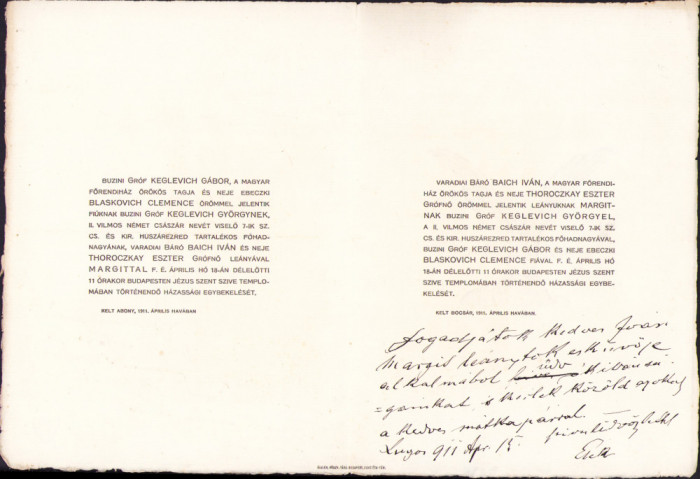 BUZINI GRÓF KEGLEVICH GÁBOR, A MAGYAR
FŐRENDIHÁZ ÖRÖKÖS TAGJA ÉS NEJE EBECZKI
BLASKOVICH CLEMENCE ÖRÖMMEL JELENTIK
FIÚKNAK BUZINI GRÓF KEGLEVICH GYÖRGYNEK,
II. VILMOS NÉMET CSÁSZÁR NEVÉT VISELŐ 7-IK SZ.
CS. ÉS KIR. HUSZÁREZRED TARTALÉKOS FŐHAD-
NAGYÁNAK, VARADIAI BÁRÓ BAICH IVÁN ÉS NEJE
THOROCZKAY ESZTER GRÓFNŐ LEÁNYÁVAL
MARGITTAL F. É. ÁPRILIS HÓ 18-ÁN DÉLELŐTTI
11 ÓRAKOR BUDAPESTEN JÉZUS SZENT SZIVE TEMPLO-
MÁBAN TÖRTÉNENDŐ HÁZASSÁGI EGYBEKELÉSÉT.
KELT ABONY, 1911. ÁPRILIS HAVÁBAN
VARADIAI BÁRÓ BAICH IVÁN, A MAGYAR FŐRENDI-
HÁZ ÖRÖKÖS TAGJA ÉS NEJE THOROCZKAY ESZTER
GRÓFNŐ ÖRÖMMEL JELENTIK LEÁNYUKNAK MARGIT-
NAK BUZINI GRÓF KEGLEVICH GYÖRGYEL,
A II. VILMOS NÉMET CSÁSZÁR NEVÉT VISELŐ 7-IK SZ.
CS. ÉS KIR. HUSZÁREZRED TARTALÉKOS FŐHADNAGYÁVAL,
BUZINI GRÓF KEGLEVICH GÁBOR ÉS NEJE EBECZKI
BLASKOVICH CLEMENCE FIÁVAL F. É. ÁPRILIS HÓ
18-ÁN DÉLELŐTTI 11 ÓRAKOR BUDAPESTEN JÉZUS SZENT
SZIVE TEMPLOMÁBAN TÖRTÉNENDŐ HÁZASSÁGI EGYBE-
KELÉSÉT.
KELT BOCSÁR, 1911. ÁPRILIS HAVÁBAN
Fogadjátok kedves Iván
Margit leánytok esküvője
alkalmából üdv kivánsá-
=gainkat és kérlek közöld azokat
a kedves mátkapárral
Lugos 911 Apr. 15.